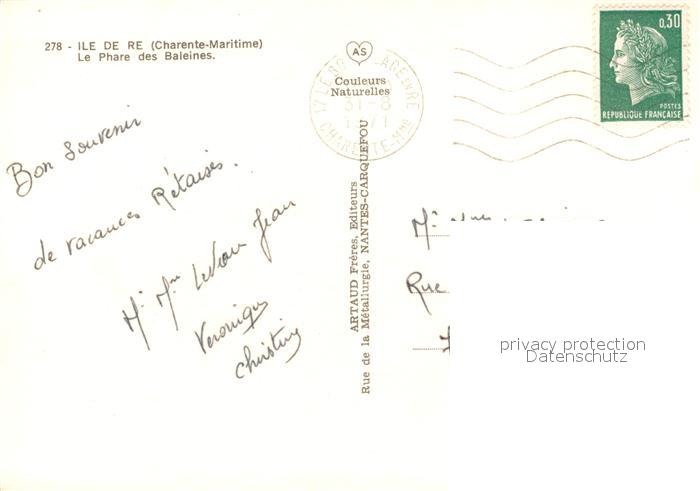 278 - ILE DE RE (Charente-Maritime)
Le Phare des Baleines.
AS
Couleurs
Naturelles
31-8
CHARENTE-Mme
0,30
POSTES
REPUBLIQUE FRANÇAISE
Bon Souvenir
de vacances Rétaises.
M. Mme Jean
Veronique
Christine
ARTAUD Frères, Editeurs
Rue de la Métallurgie, NANTES-CARQUEFOU
Mr
Rue
privacy protection
Datenschutz